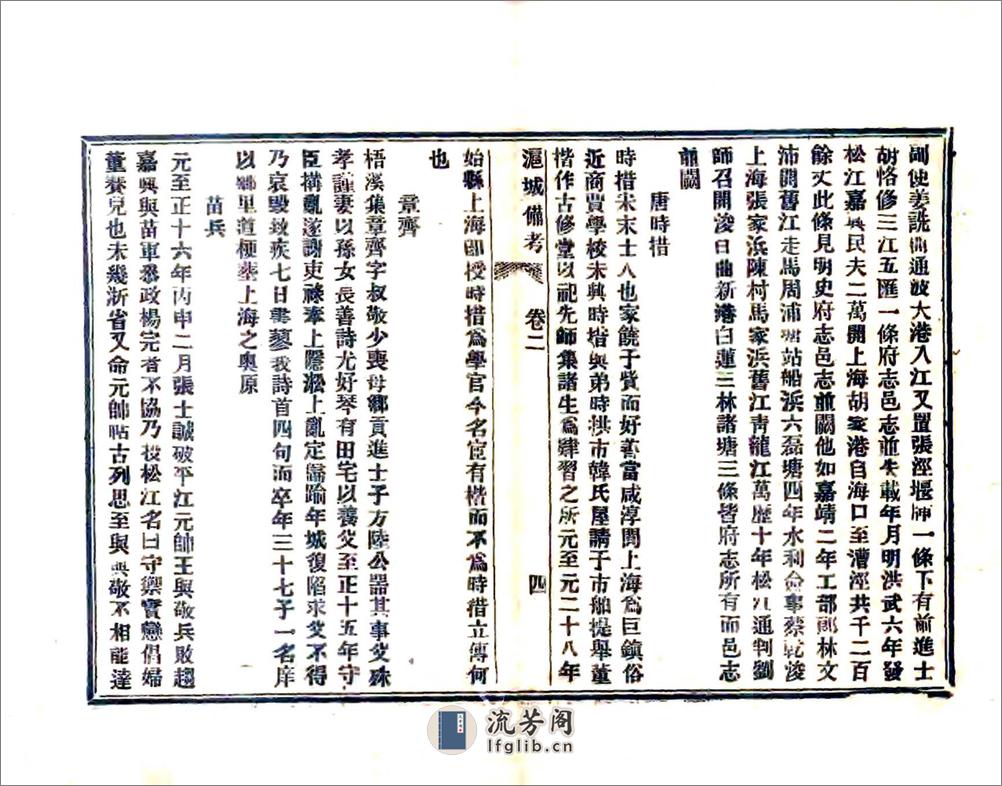 副使姜詵曲通波大港入江又置張涇堰牐一條下有前進士
胡恪修三江五匯一條府志邑志並失載年月明洪武六年發
松江嘉興民夫二萬開上海胡家港自海口至漕涇共千二百
餘丈此條見明史府志邑志並闕他如嘉靖二年工部郎林文
沛開舊江走馬周浦塘站船浜六磊塘四年水利僉事蔡乾浚
上海張家浜陳村馬家浜舊江青龍江萬歷十年松江通判劉
師召開浚曰曲新港白蓮三林諸塘三條皆府志所有而邑志
並闕
唐時措
時措宋末士人也家饒于貲而好善當咸淳間上海為巨鎮俗
近商賈學校未興時措與弟時拱市韓氏屋請于市舶提舉董
楷作古修堂以祀先師集諸生為肄習之所元至元二十八年
滬城備考 卷二 四
始縣上海即授時措為學官今名宦有楷而不為時措立傳何
也
章齊
梧溪集章齊字叔敬少喪母鄉貢進士子方陸公器其事父殊
孝謹妻以孫女長善詩尤好琴有田宅以養父至正十五年守
臣搆亂遂謝吏祿奉上隱淞上亂定歸踰年城復陷求父不得
乃哀毀致疾七日書蓼我詩首四句而卒年三十七子一名庠
以鄉里道梗葬上海之奧原
苗兵
元至正十六年丙申二月張士誠破平江元帥王與敬兵敗趨
嘉興與苗軍忝政楊完者不協乃投松江名曰守禦實戀倡婦
董賽兒也未幾浙省又命元帥帖古列思至與與敬不相能達
流芳阁
lfglib.cn